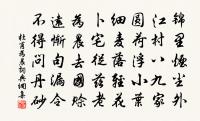 錦里煙塵外
江村八九家
圓荷浮小葉
細麥落輕花
卜宅從茲老
為農去國賒
遠慚句漏令
不得問丹砂
杜甫為農詞典網集